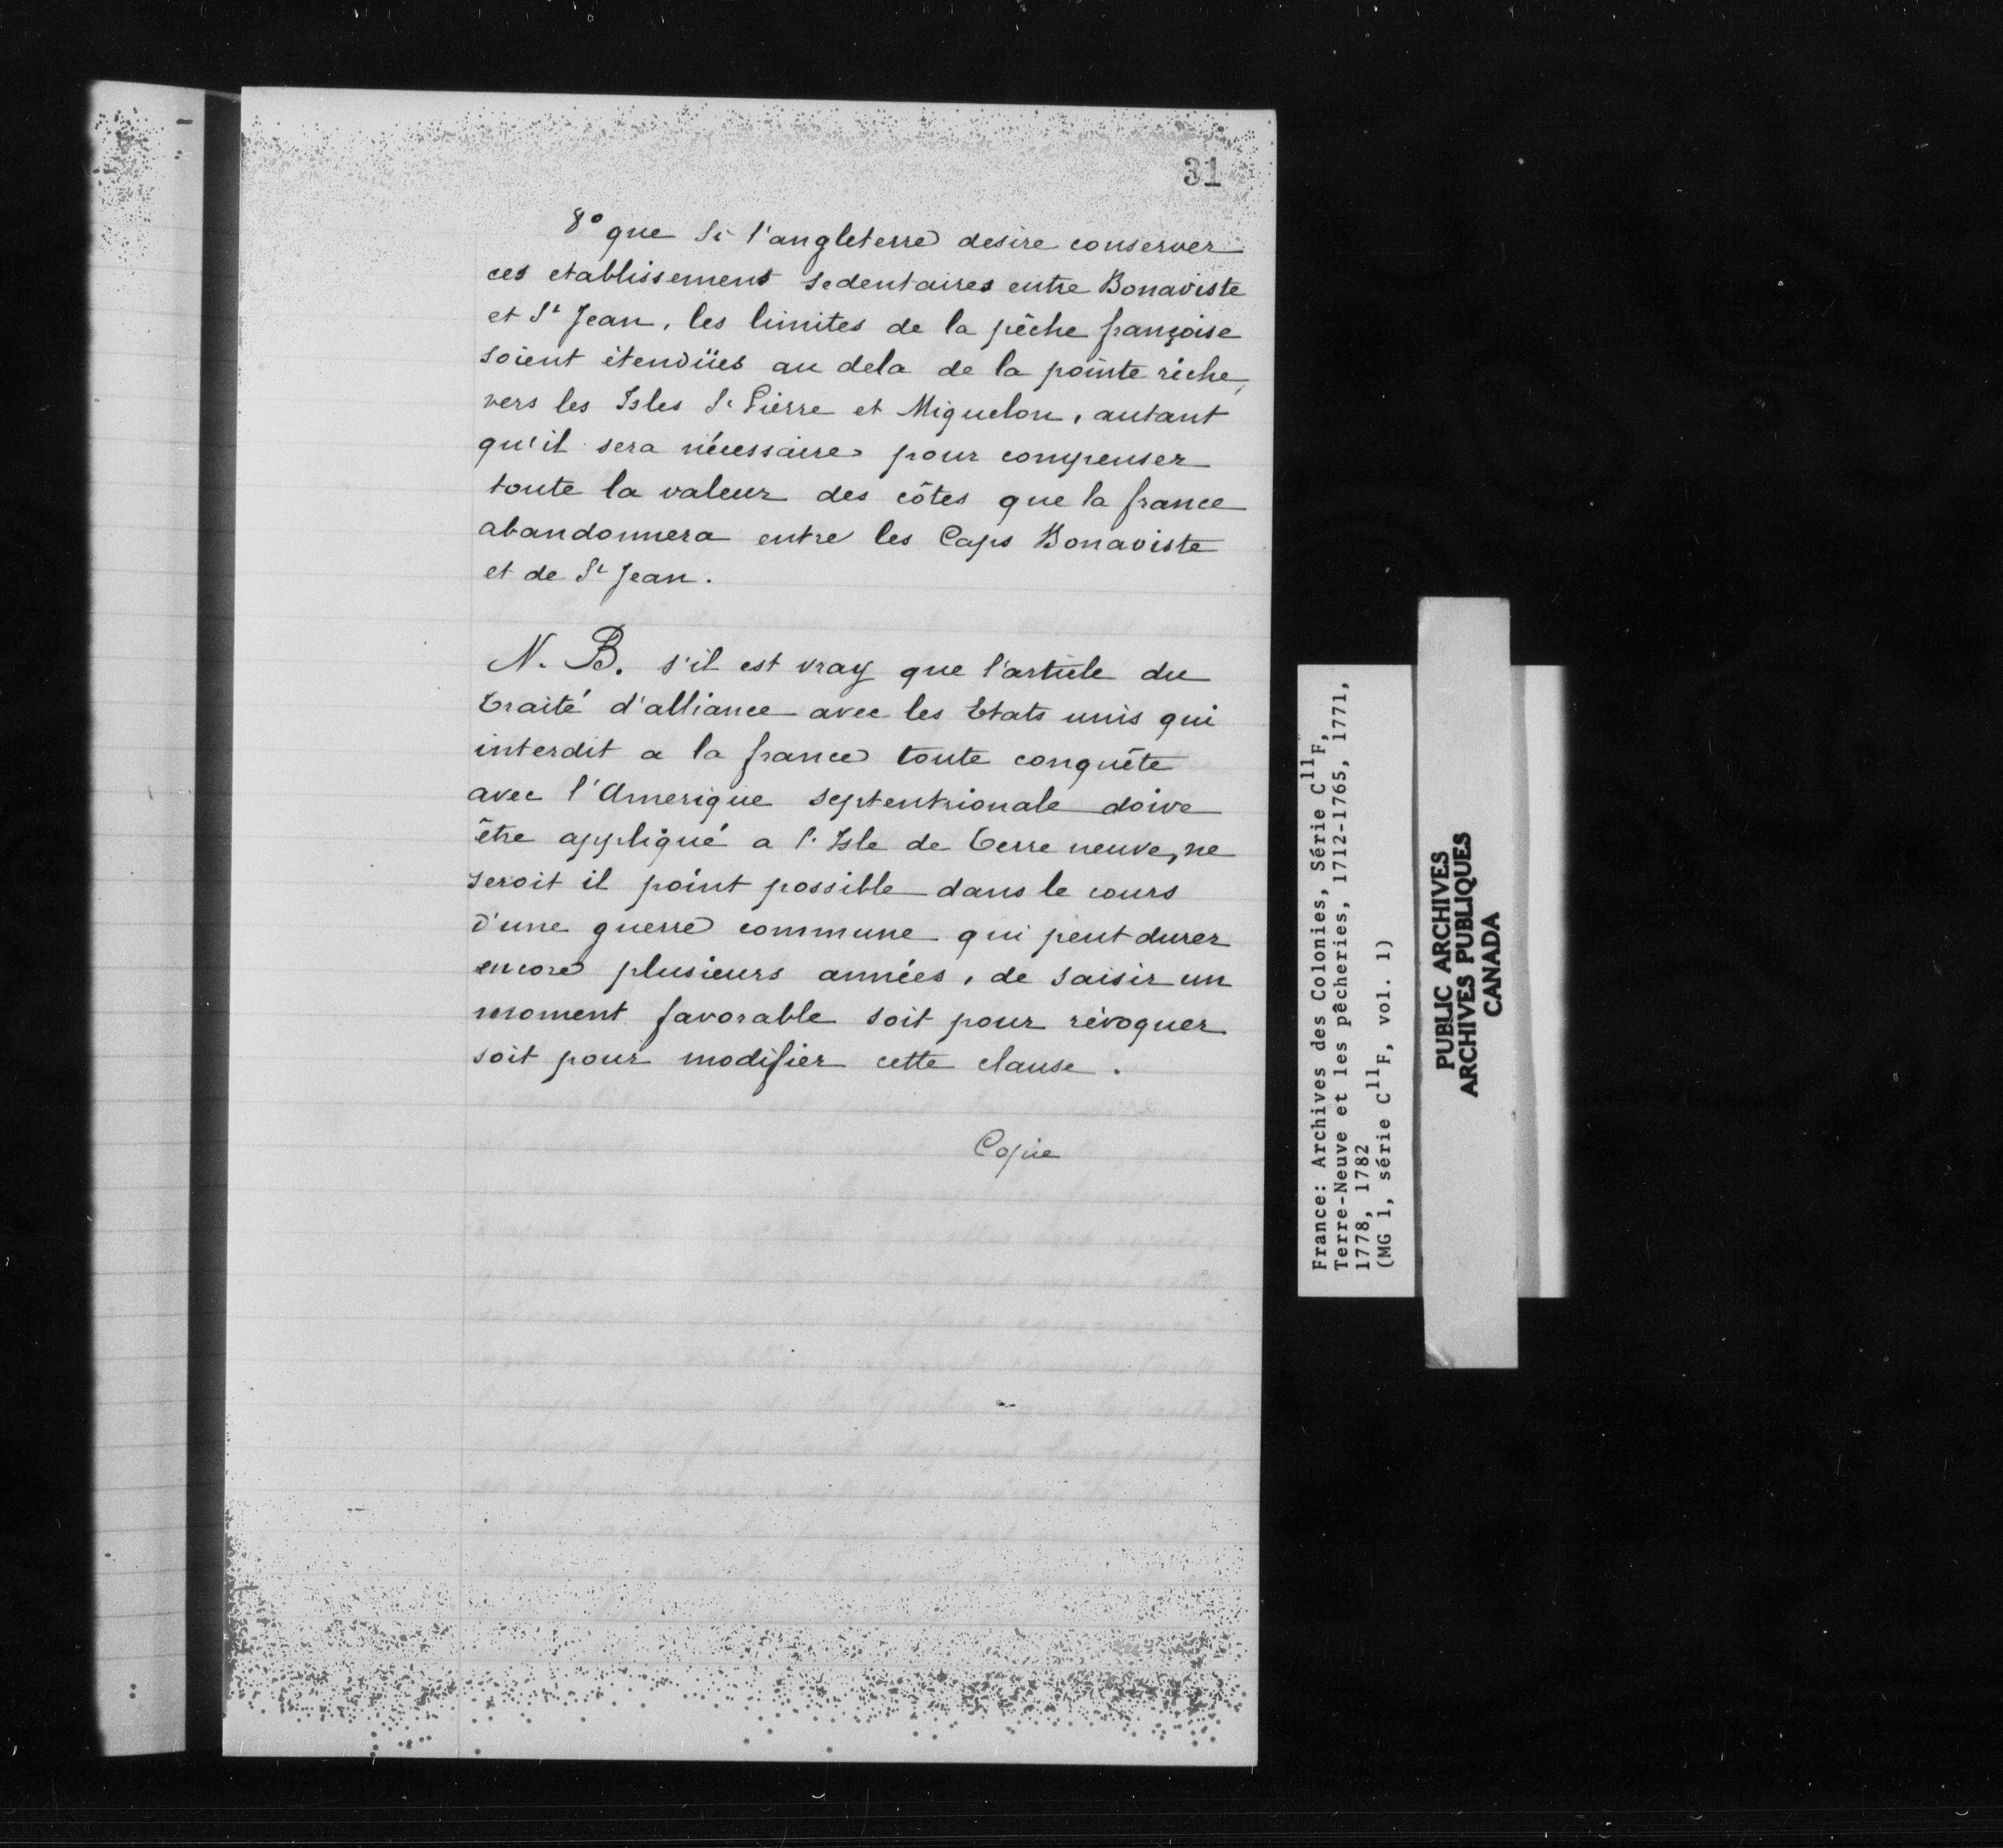 31
8° que si l'angleterre desire conserver
ces etablissemens sedentaires entre Bonaviste
et St Jean, les limites de la pêche françoise
soient étendües au dela de la pointe riche,
vers les Isles St Pierre et Miquelon, autant
qu'il sera nécessaire pour compenser
toute la valeur des côtes que la france
abandonnera entre les Caps Bonaviste
et de St Jean.
N. B. s'il est vray que l'article du
traité d'alliance avec les Etats unis qui
interdit a la france toute conquête
avec l'Amerique septentrionale doive
être appliqué a l'Isle de terre neuve, ne
seroit il point possible dans le cours
d'une guerre commune qui peut durer
encore plusieurs années, de saisir un
moment favorable soit pour révoquer
soit pour modifier cette clause.
Copie
France: Archives des Colonies, Série C11F,
Terre-Neuve et les pêcheries, 1712-1765, 1771,
1778, 1782
(MG 1, série C11F, vol. 1)
PUBLIC ARCHIVES
ARCHIVES PUBLIQUES
CANADA